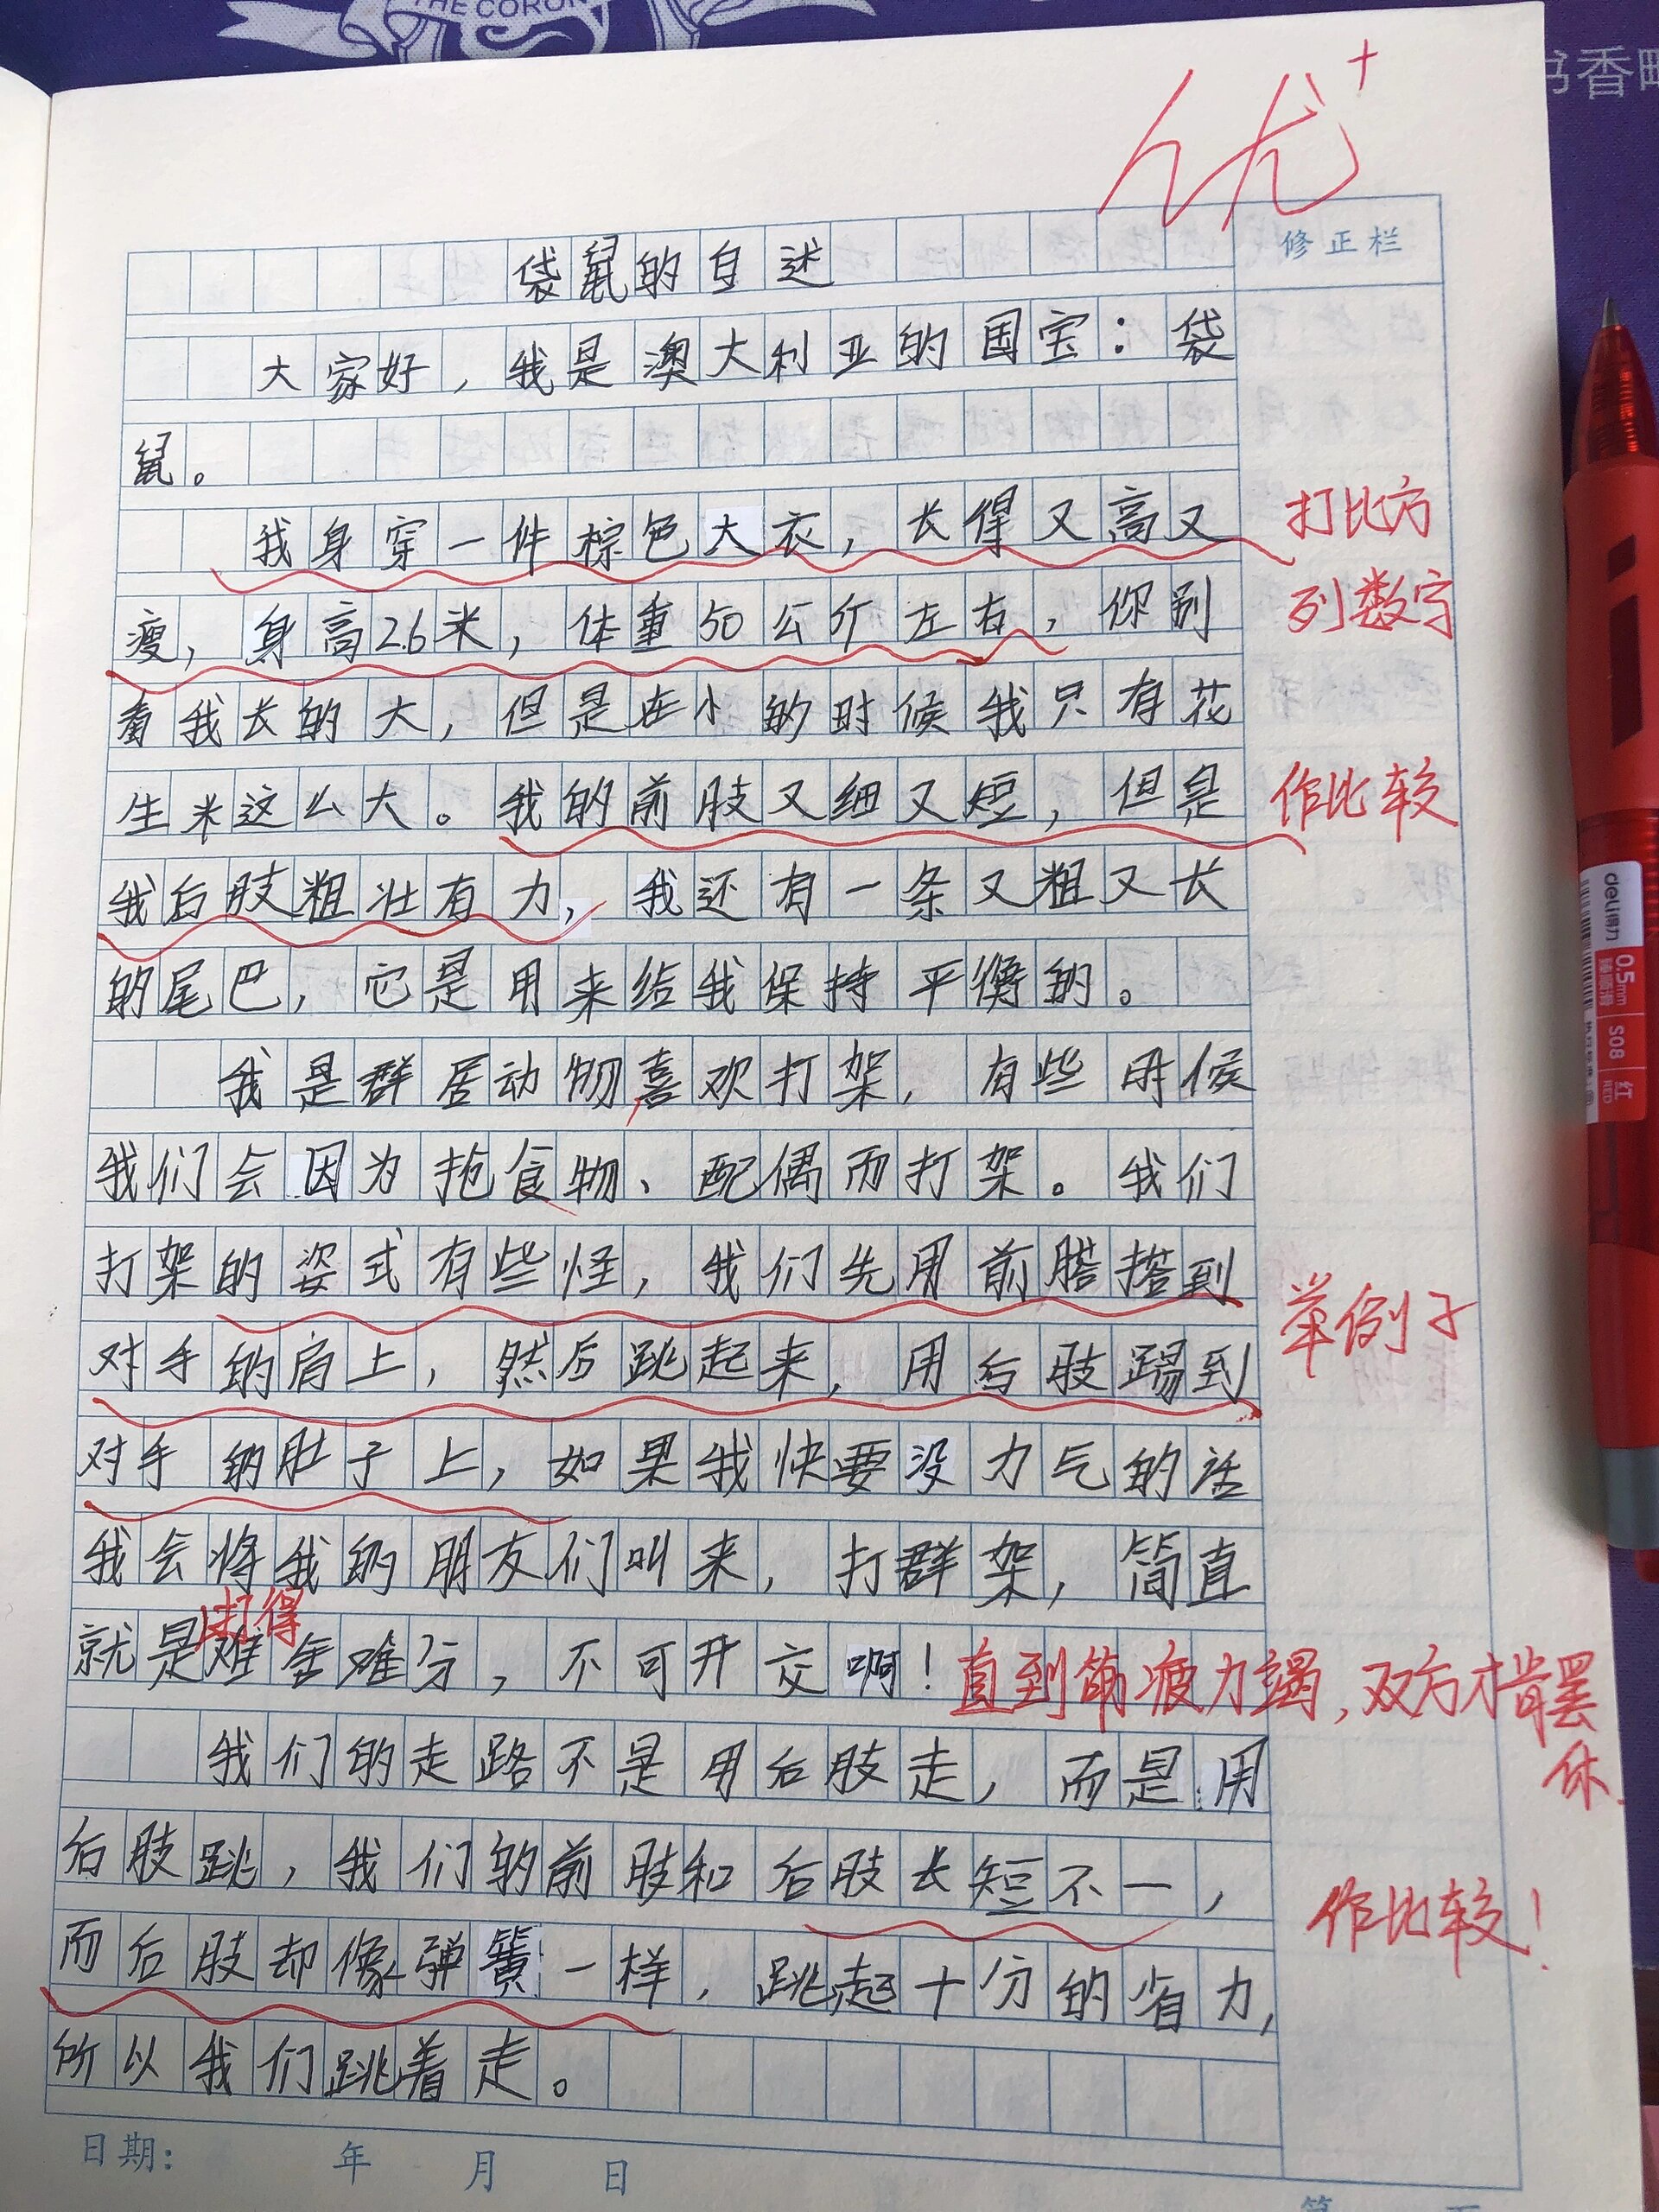 THE CORON
书香
优+
修正栏
袋鼠的自述
大家好，我是澳大利亚的国宝：袋
鼠。
我身穿一件棕色大衣，长得又高又
打比方
瘦，身高2.6米，体重50公斤左右，你别
列数字
看我长的大，但是在小的时候我只有花
生米这么大。我的前肢又细又短，但是
作比较
我后肢粗壮有力，我还有一条又粗又长
的尾巴，它是用来给我保持平衡的。
我是群居动物，喜欢打架，有些时候
我们会因为抢食物、配偶而打架。我们
打架的姿式有些怪，我们先用前搭搭到
举例子
对手的肩上，然后跳起来，用后肢踢到
对手的肚子上，如果我快要没力气的话
我会将我的朋友们叫来，打群架，简直
打得
就是难舍难分，不可开交啊！
直到筋疲力竭，双方才肯罢
休.
我们的走路不是用后肢走，而是用
后肢跳，我们的前肢和后肢长短不一，
作比较！
而后肢却像弹簧一样，跳起十分的省力，
所以我们跳着走。
日期： 年 月 日
第
deli得力
0.5mm
S08
红
RED